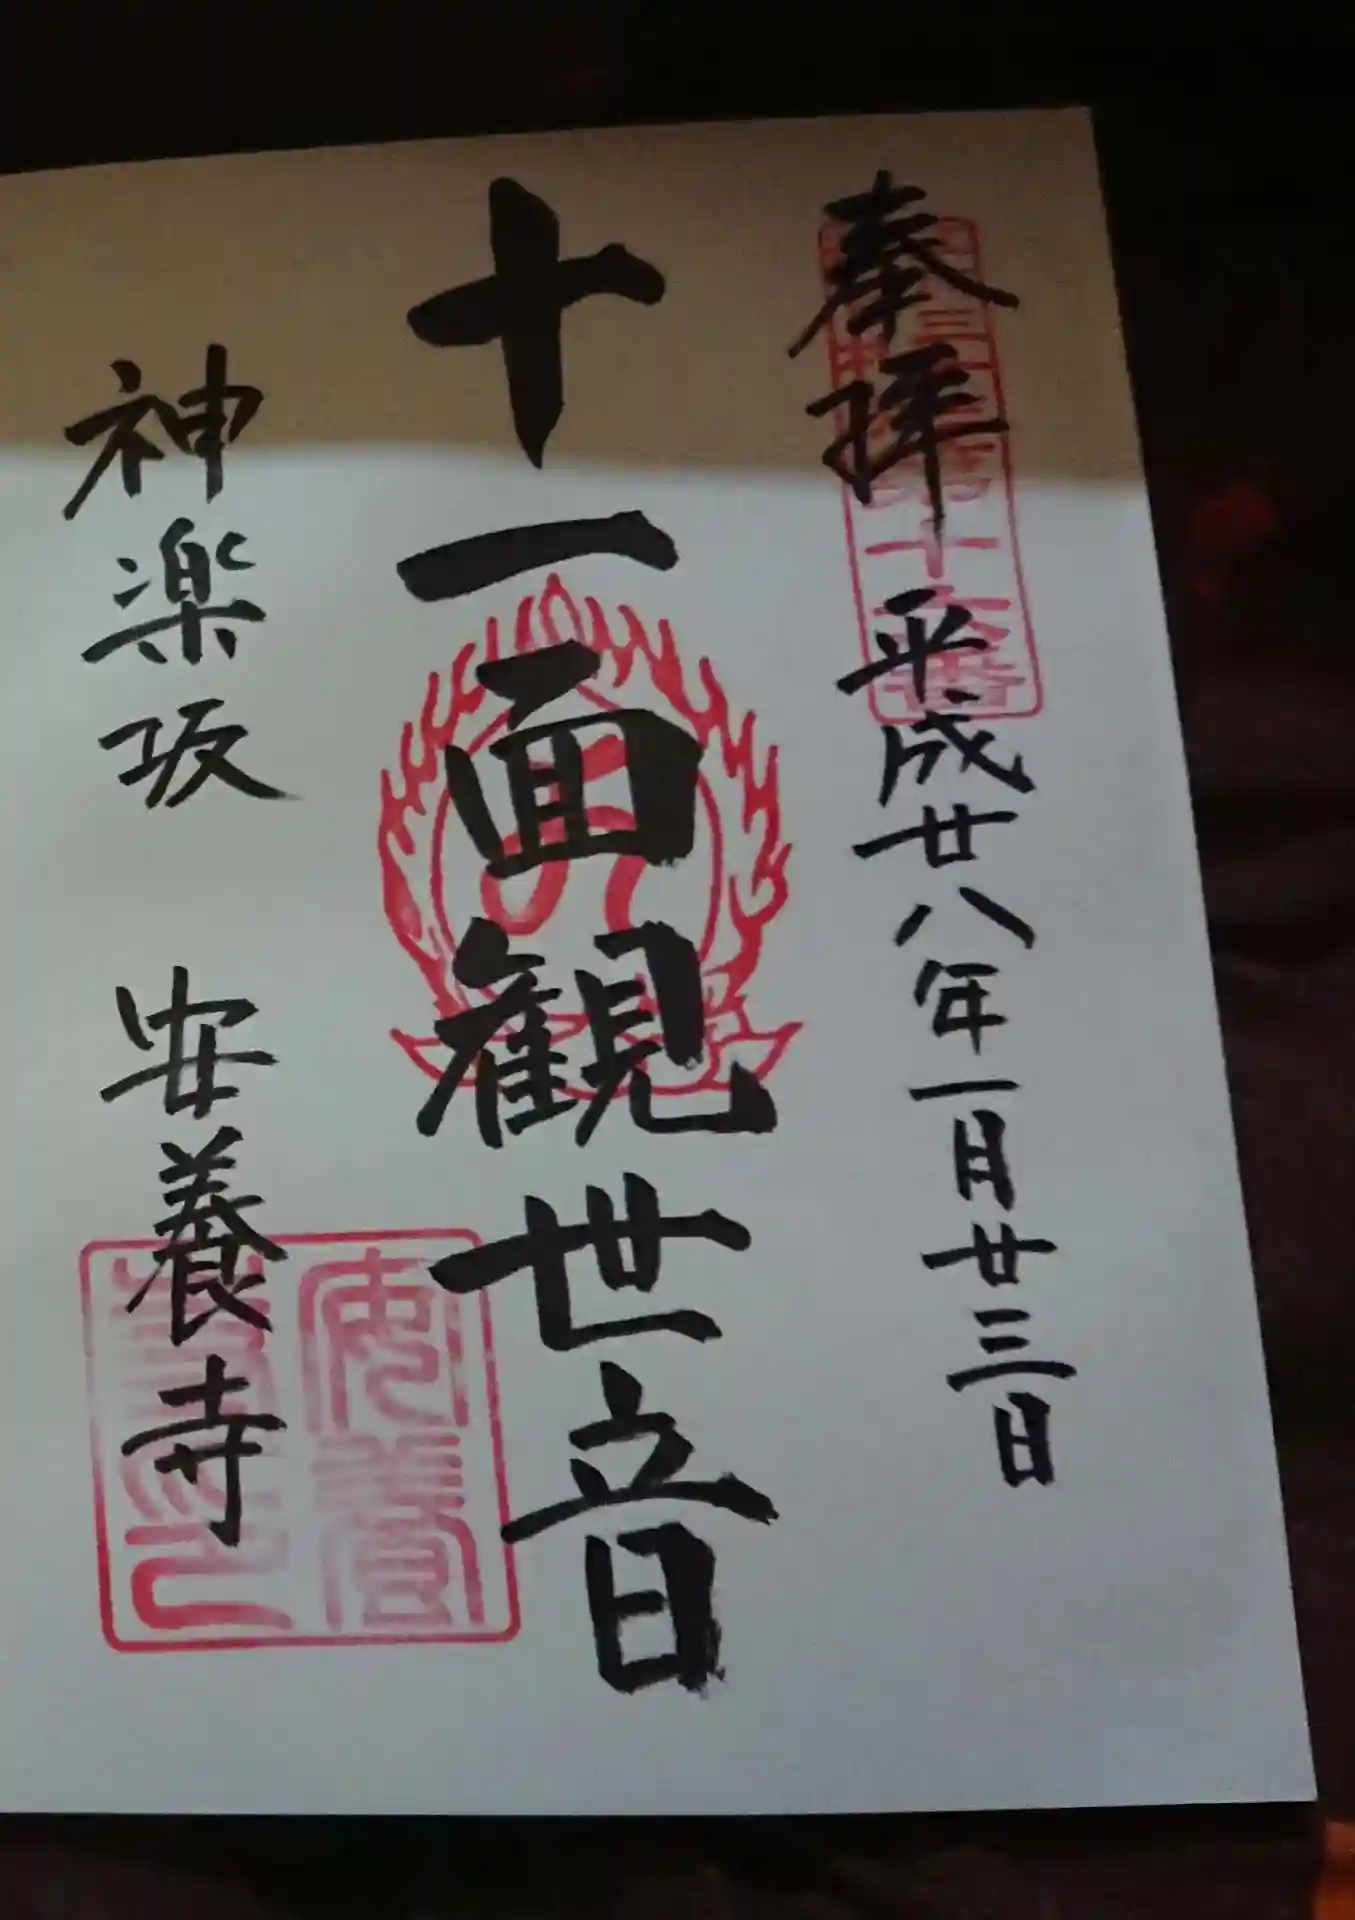 奉拝 平成廿八年一月廿三日
十一面観世音
神楽坂 安養寺